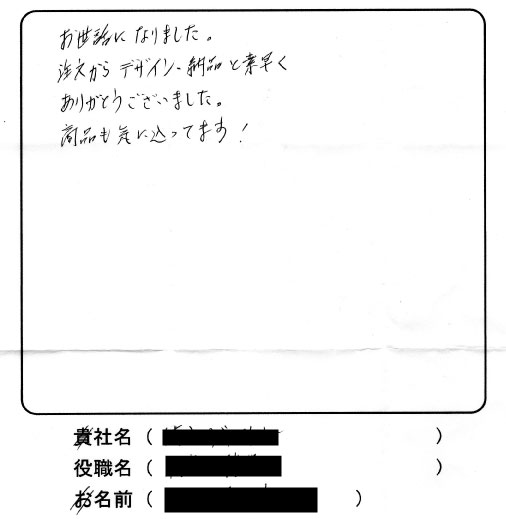 お世話になりました。
注文から デザイン・納品と素早く
ありがとうございました。
商品も気に入ってます!
貴社名（ ）
役職名（ ）
お名前（ ）